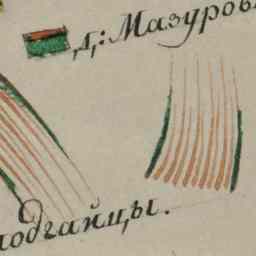 д,: Мазуров
подгайцы.